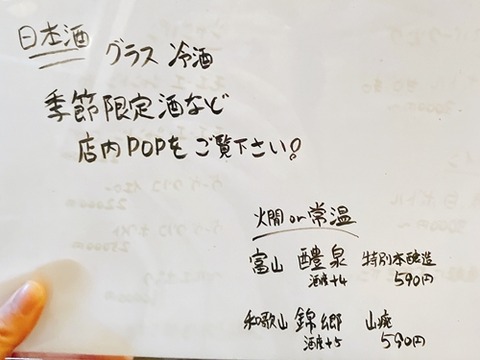 日本酒 グラス 冷酒
季節限定酒など
店内POPをご覧下さい!
燗 or 常温
富山 醴泉 特別本醸造
酒度+4 590円
和歌山 錦郷 山廃
酒度+5 590円